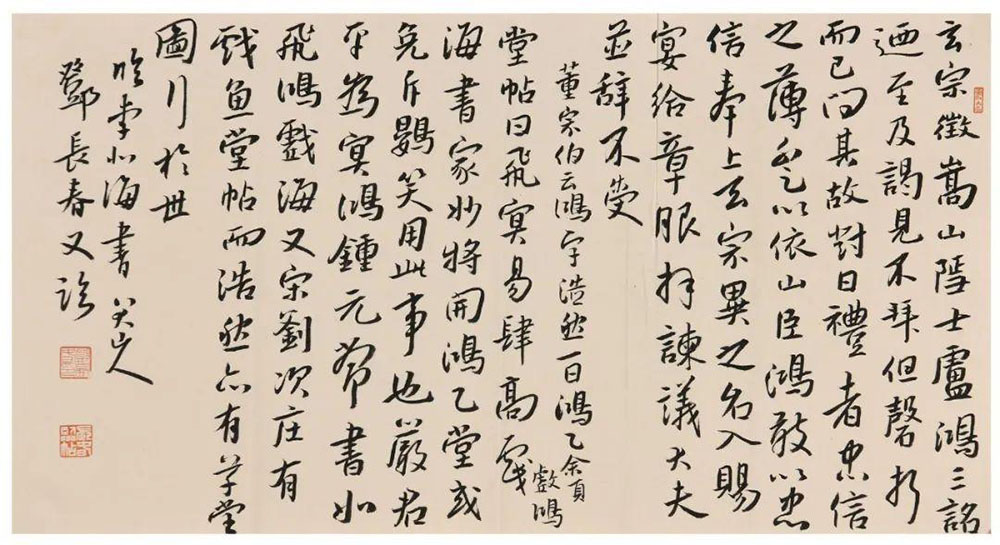 玄宗徵嵩山隱士盧鴻三詔
迺至及謁見不拜但磬折
而已問其故對曰禮者忠信
之薄以依山臣鴻敢以忠
信奉上玄宗異之召入賜
宴給章服拜諫議大夫
並辭不受
董宗伯云鴻字浩然一曰鴻乙余頁
戲鴻
堂帖曰飛冥易肆高
海書家妙將開鴻乙堂或
免斥鷃笑用此事也嚴君
平為冥鴻鍾元常書如
飛鴻戲海又宋劉次庄有
戲魚堂帖而浩然亦有草堂
圖行於世
臨李北海書八大山人
鄧長春又臨